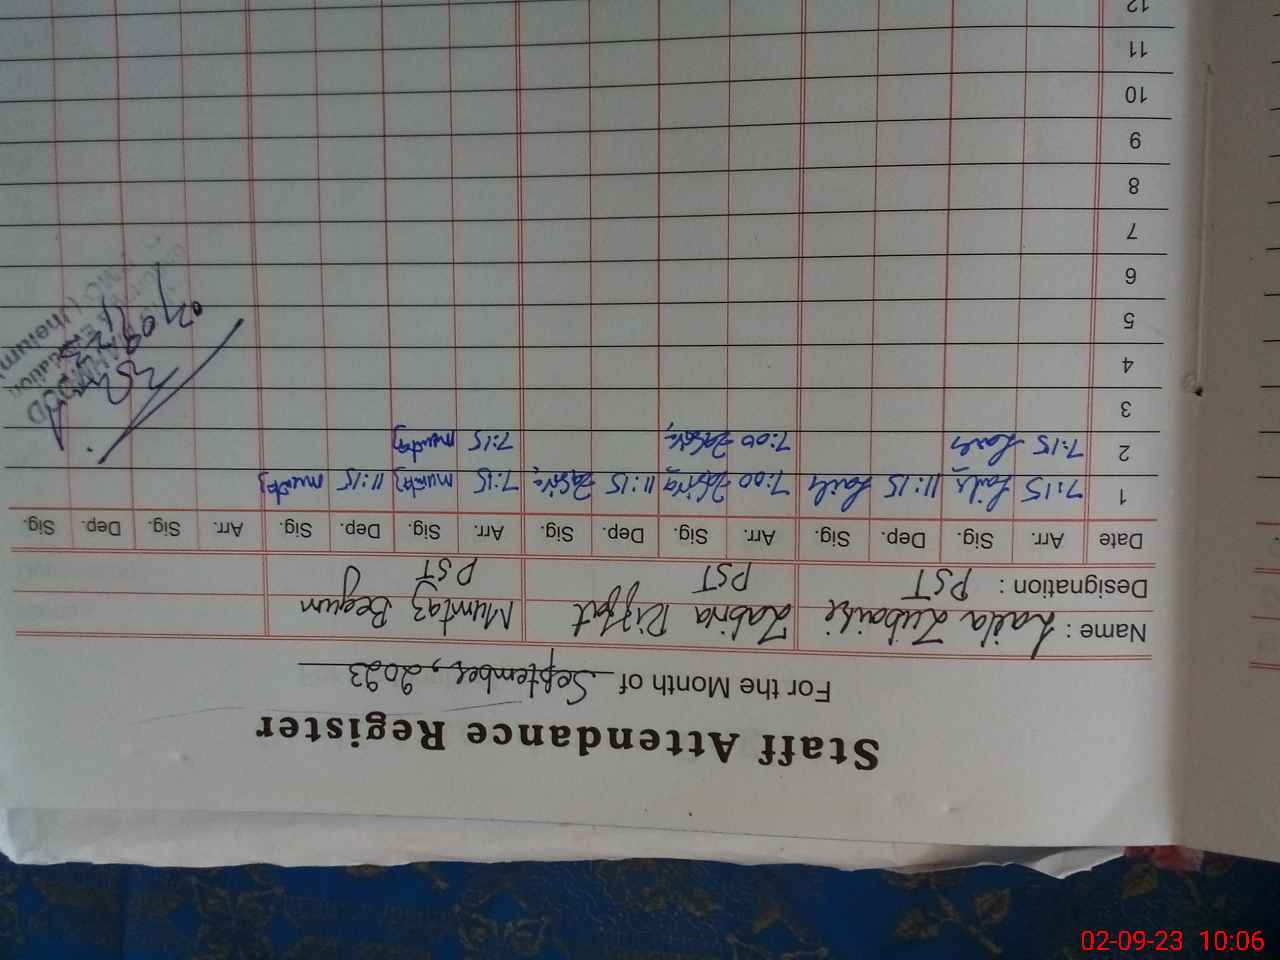 Staff Attendance Register
For the Month of September, 2023
Name : Laila Zubaibi Zabiva Riffat Mumtaz Begum
Designation : PST PST PST
Date Arr. Sig. Dep. Sig. Arr. Sig. Dep. Sig. Arr. Sig. Dep. Sig. Arr. Sig. Dep. Sig.
1 7:15 Laila 11:15 Laila 7:00 Zabiva 11:15 Zabiva 7:15 mumtaz 11:15 mumtaz
2 7:15 Laila 7:00 Zabiva 7:15 mumtaz
3
4
5
6
7
8
9
10
11
12
02-09-23 10:06